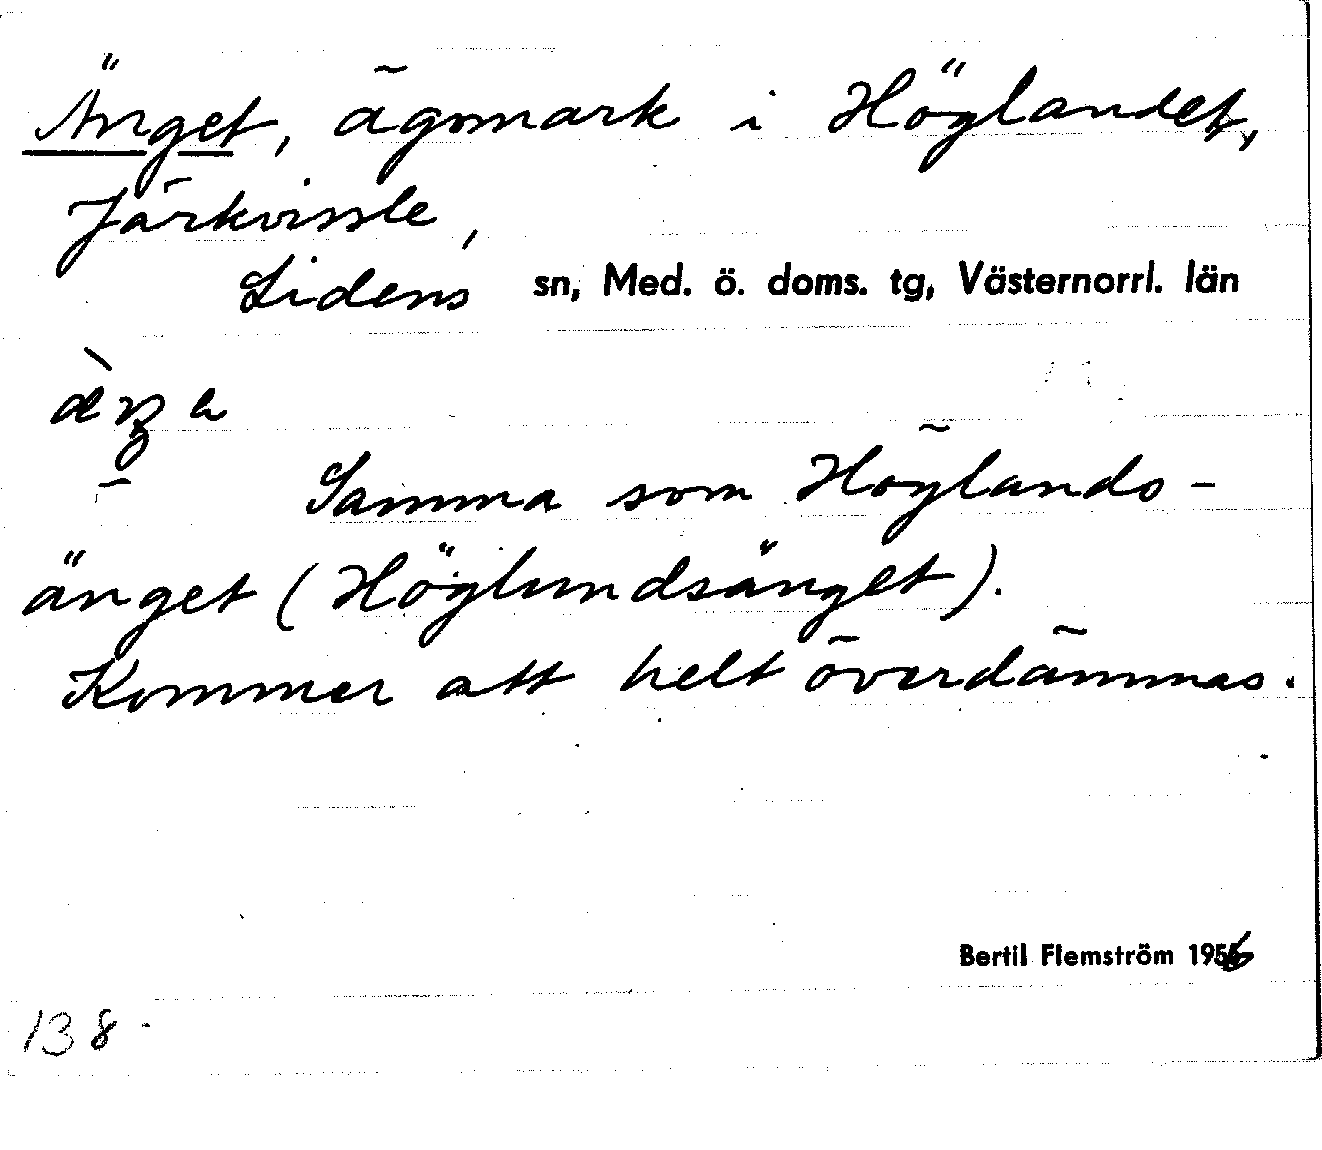 Änget, ägomark i Höglandet,
Järkvissle,
Lidens sn, Med. ö. doms. tg, Västernorrl. län
Samma som Höglands-
änget (Höglundsänget).
Kommer att helt överdämmas.
Bertil Flemström 1956
138